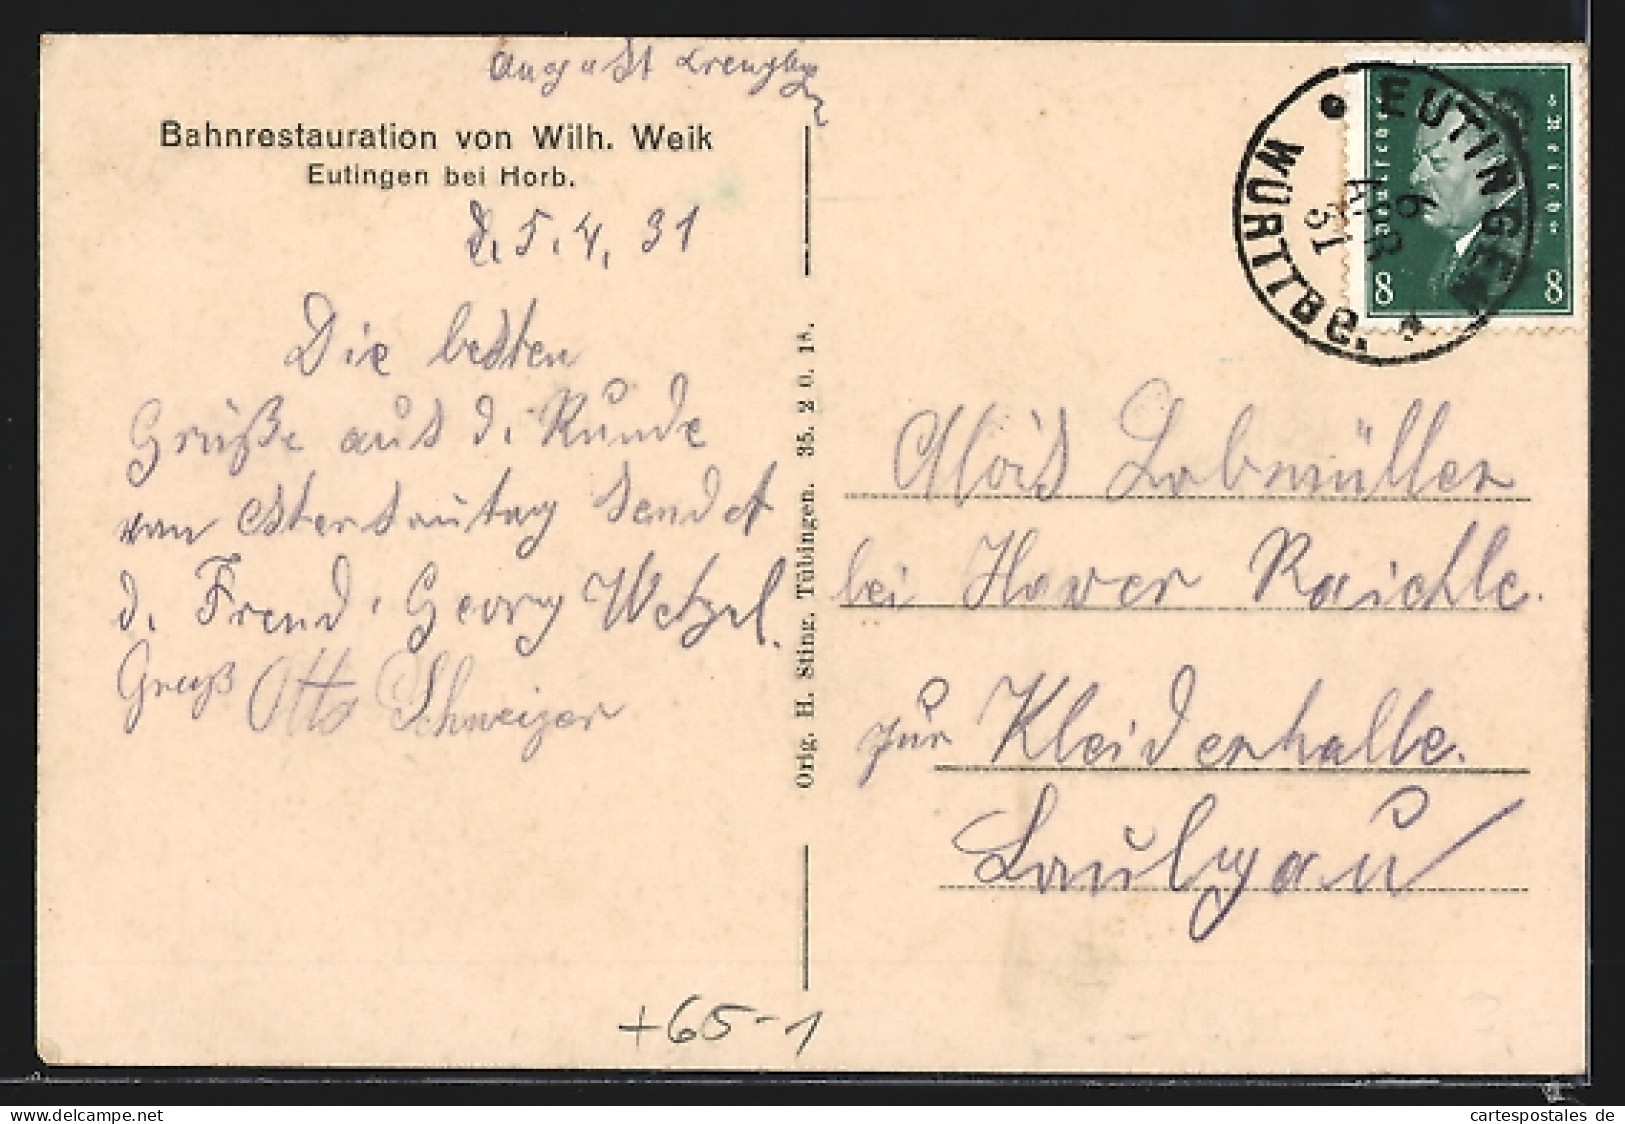 August
Bahnrestauration von Wilh. Weik
Eutingen bei Horb.
d. 5. 4. 31
Die besten
Grüße aus d. Runde
von sendet
d. Freund. Georg Wetzel.
Gruß Otto Schweizer
Orig. H. Sting, Tübingen. 35. 2 0. 18.
EUTINGEN
WÜRTTBG.
6 APR 31
Deutsches Reich
8 8
Alois Lobmüller
bei Xaver Raichle.
zur Kleiderhalle.
Saulgau
+65-1
cartespostales de